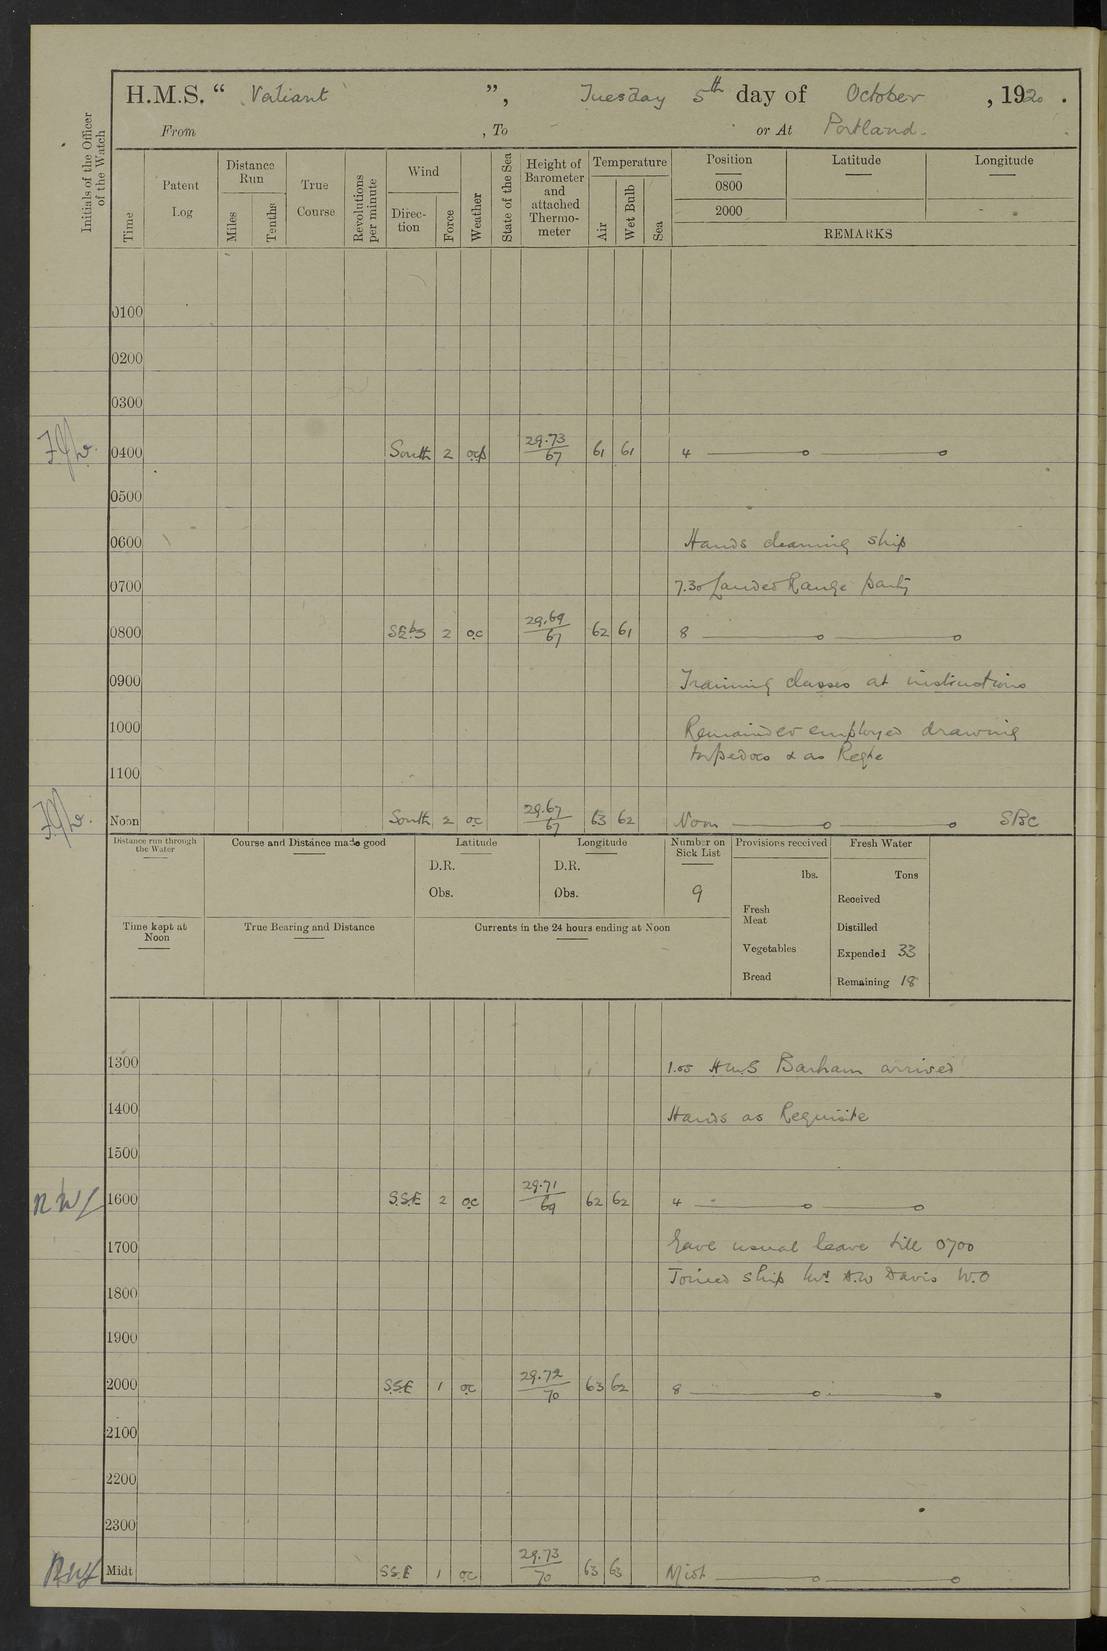 H.M.S. “ Valiant ”, Tuesday 5th day of October , 1920 .
From , To or At Portland.
Initials of the Officer of the Watch
Time
Patent Log
Distance Run
Miles
Tenths
True Course
Revolutions per minute
Wind
Direc-tion
Force
Weather
State of the Sea
Height of Barometer and attached Thermo-meter
Temperature
Air
Wet Bulb
Sea
Position
0800
2000
Latitude
Longitude
REMARKS
0100
0200
0300
0400 South 2 29.73/67 61 61 4
0500
0600 Hands cleaning ship
0700 7.30 Landed Range party
0800 SEbS 2 oc 29.69/67 62 61 8
0900 Training classes at instructions
1000 Remainder employed drawing
torpedoes & as Reqte
1100
Noon South 2 oc 29.67/67 63 62 Noon SBC
Distance run through the Water
Course and Distance made good
Latitude
D.R.
Obs.
Longitude
D.R.
Obs.
Number on Sick List
9
Provisions received
lbs.
Fresh Meat
Vegetables
Bread
Fresh Water
Tons
Received
Distilled
Expended 33
Remaining 18
Time kept at Noon
True Bearing and Distance
Currents in the 24 hours ending at Noon
1300 1.05 HMS Barham arrived
1400 Hands as Requisite
1500
1600 S.S.E 2 oc 29.71/69 62 62 4
1700 Gave usual leave till 0700
Joined ship Mr A.W Davis W.O
1800
1900
2000 S.S.E 1 oc 29.72/70 63 62 8
2100
2200
2300
Midt S.S.E 1 oc 29.73/70 63 63 Midt